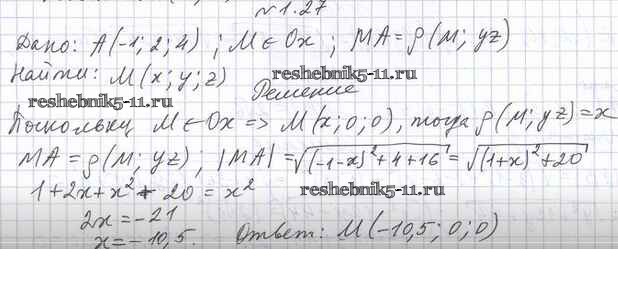 №1.27
Дано: A(-1; 2; 4) ; M ∈ Ox ; MA = ρ(M; yz)
Найти: M(x; y; z)
reshebnik5-11.ru
Решение
reshebnik5-11.ru
Поскольку M ∈ Ox => M(x; 0; 0), тогда ρ(M; yz) = x
MA = ρ(M; yz) ; |MA| = √((-1-x)² + 4 + 16) = √((1+x)² + 20)
1 + 2x + x² + 20 = x²
2x = -21
x = -10,5. Ответ: M(-10,5; 0; 0)